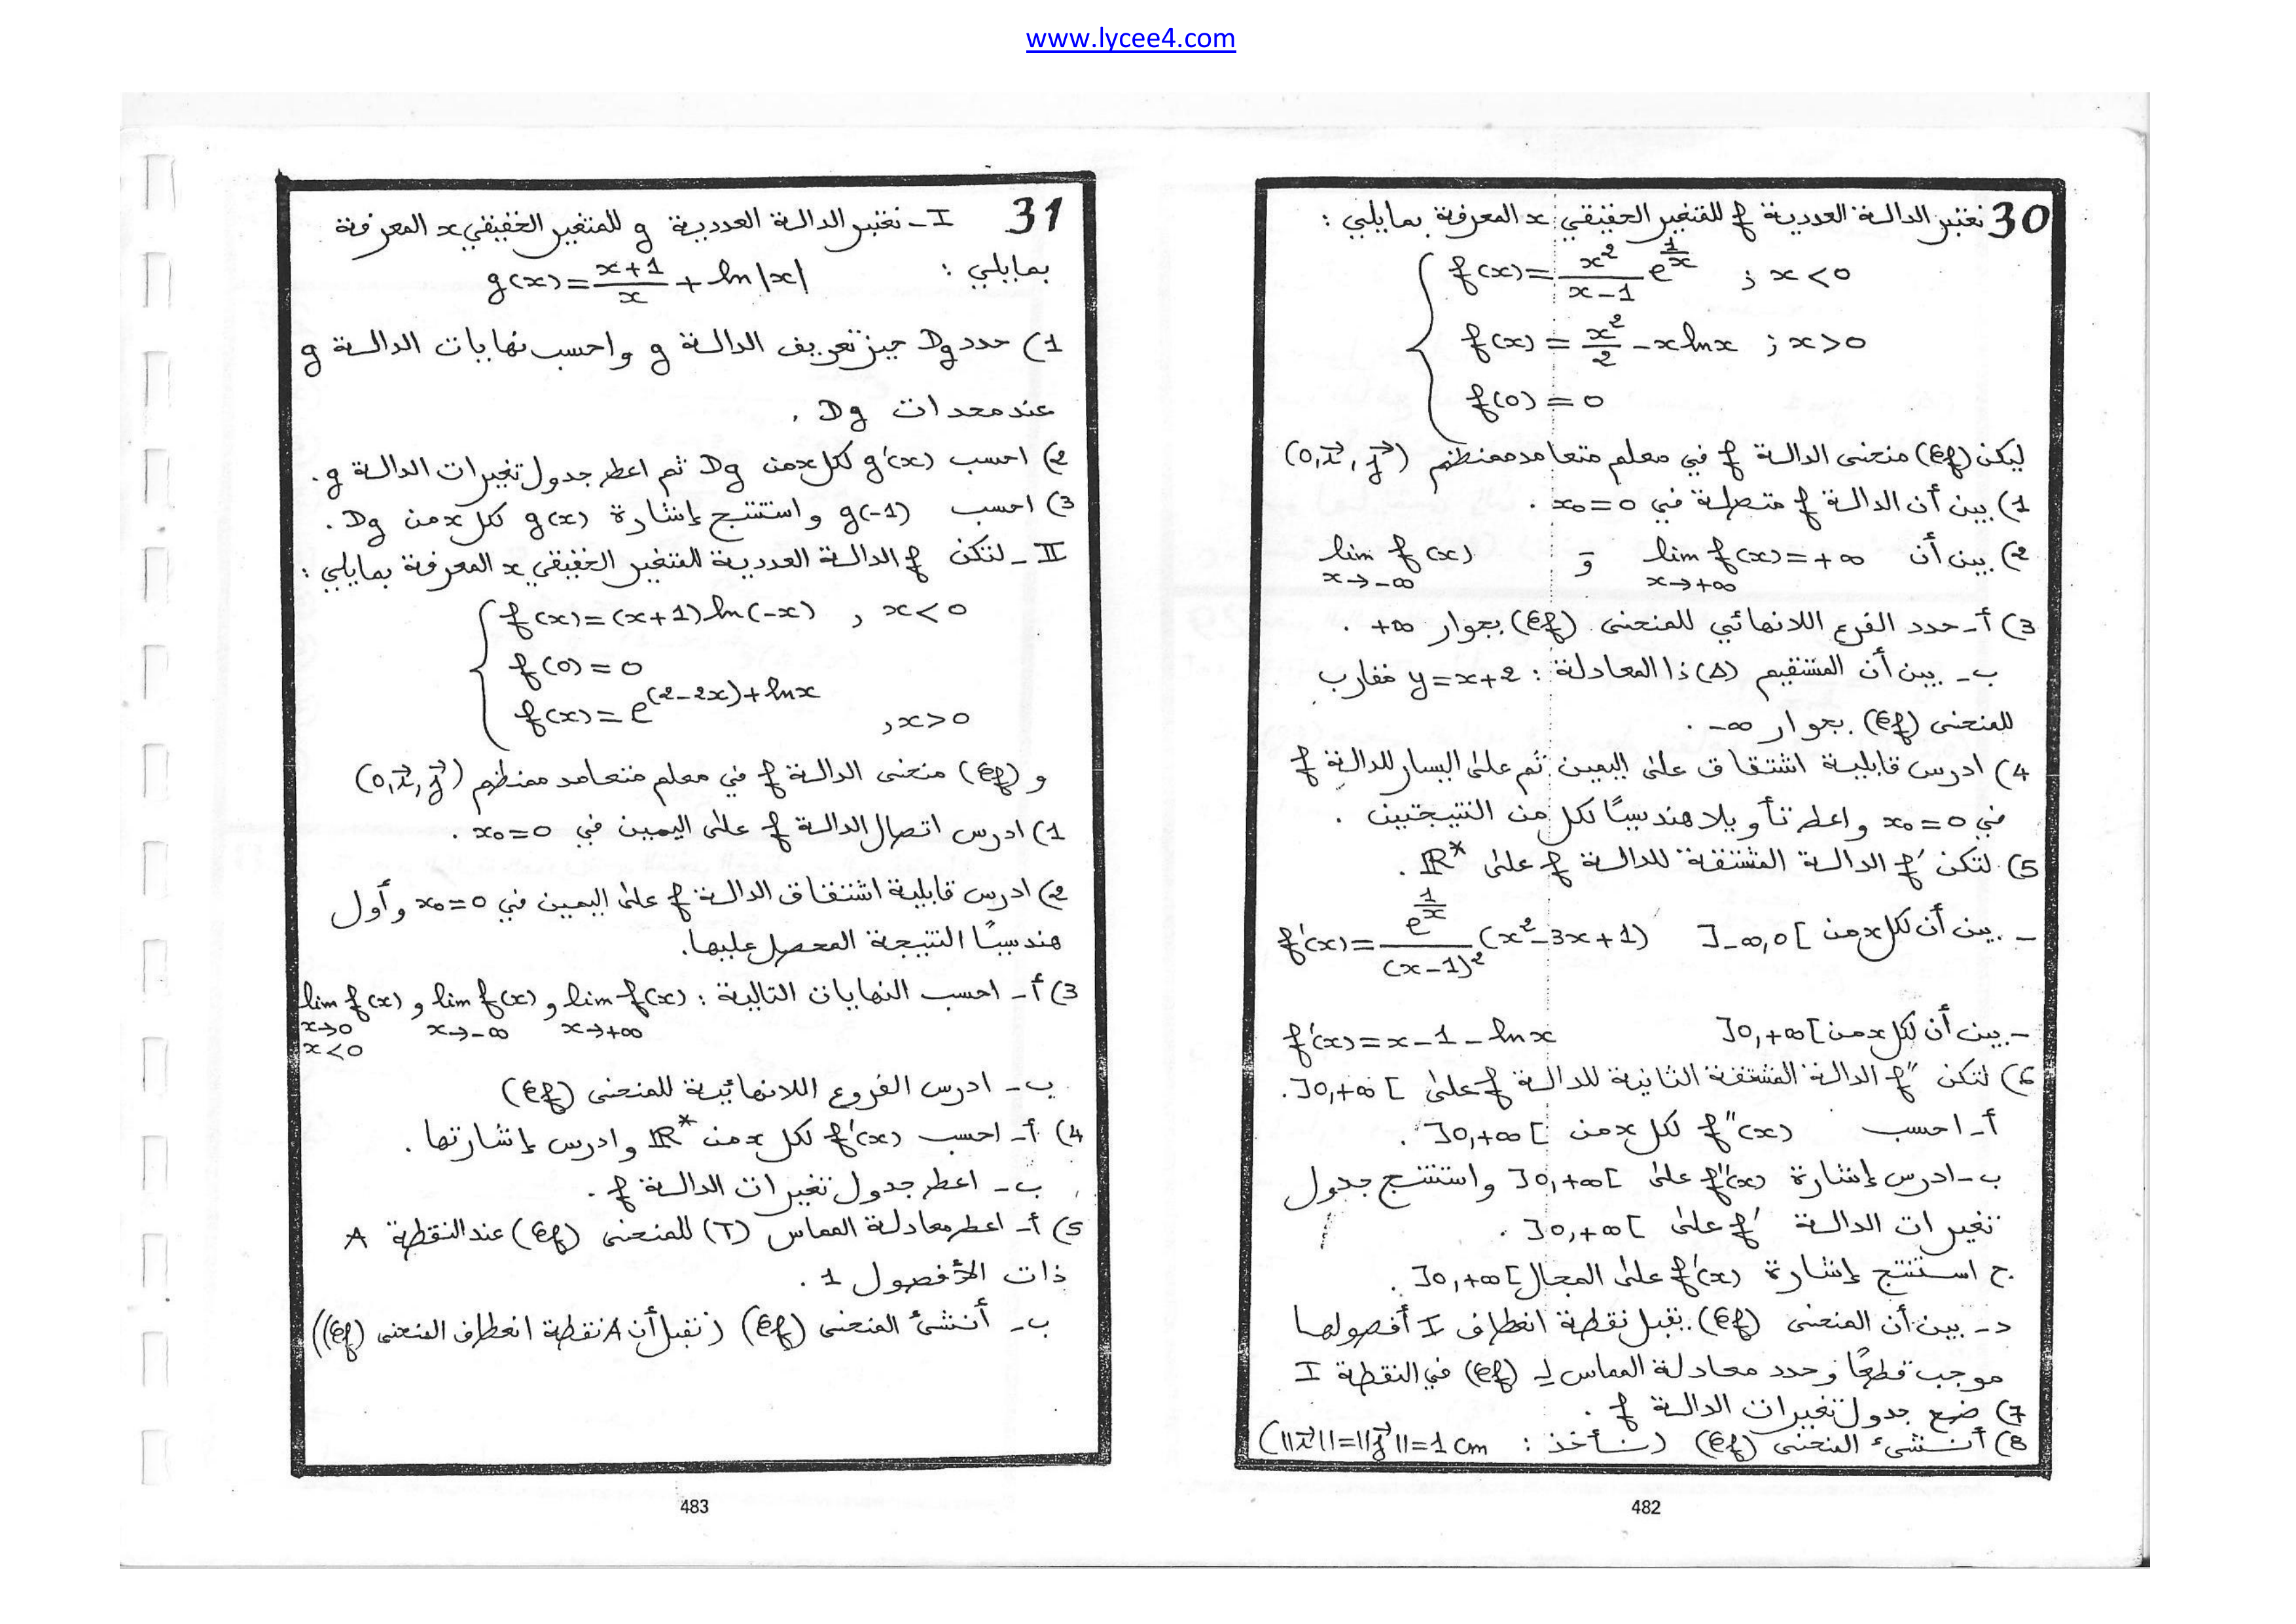 www.lycee4.com
30 نعتبر الدالة العددية f للمتغير الحقيقي x المعرفة بمايلي :
f(x) = x²/(x-1) e^(1/x) ; x < 0
f(x) = x²/2 - x ln x ; x > 0
f(0) = 0
ليكن (Cf) منحنى الدالة f في معلم متعامد ممنظم (O, i→, j→)
1) بين أن الدالة f متصلة في x₀ = 0 .
2) بين أن lim f(x) = +∞ و lim f(x)
x→+∞ x→-∞
3) أ- حدد الفرع اللانهائي للمنحنى (Cf) بجوار +∞ .
ب- بين أن المستقيم (Δ) ذا المعادلة : y = x+2 مقارب
للمنحنى (Cf) بجوار -∞ .
4) ادرس قابلية اشتقاق على اليمين ثم على اليسار للدالة f
في x₀ = 0 واعط تأويلا هندسيًا لكل من النتيجتين .
5) لتكن f' الدالة المشتقة للدالة f على ℝ* .
- بين أن لكل x من ]-∞,0[ f'(x) = e^(1/x)/(x-1)² (x²-3x+1)
- بين أن لكل x من ]0,+∞[ f'(x) = x-1-ln x
6) لتكن f'' الدالة المشتقة الثانية للدالة f على ]0,+∞[ .
أ- احسب f''(x) لكل x من ]0,+∞[ .
ب- ادرس إشارة f''(x) على ]0,+∞[ واستنتج جدول
تغيرات الدالة f' على ]0,+∞[ .
ج استنتج إشارة f'(x) على المجال ]0,+∞[ .
د- بين أن المنحنى (Cf) يقبل نقطة انعطاف I أفصولها
موجب قطعًا وحدد معادلة المماس لـ (Cf) في النقطة I
7) ضع جدول تغيرات الدالة f .
8) أنشئ المنحنى (Cf) (نأخذ : ||i→|| = ||j→|| = 1 cm)
482
31 I- نعتبر الدالة العددية g للمتغير الحقيقي x المعرفة
بمايلي : g(x) = (x+1)/x + ln|x|
1) حدد Dg حيز تعريف الدالة g واحسب نهايات الدالة g
عند محدات Dg .
2) احسب g'(x) لكل x من Dg ثم اعط جدول تغيرات الدالة g .
3) احسب g(-1) واستنتج إشارة g(x) لكل x من Dg .
II- لتكن f الدالة العددية للمتغير الحقيقي x المعرفة بمايلي :
f(x) = (x+1) ln(-x) , x < 0
f(0) = 0
f(x) = e^((2-2x)+ln x) , x > 0
و (Cf) منحنى الدالة f في معلم متعامد ممنظم (O, i→, j→)
1) ادرس اتصال الدالة f على اليمين في x₀ = 0 .
2) ادرس قابلية اشتقاق الدالة f على اليمين في x₀ = 0 وأول
هندسيًا النتيجة المحصل عليها.
3) أ- احسب النهايات التالية : lim f(x) و lim f(x) و lim f(x)
x→+∞ x→-∞ x→0
x<0
ب- ادرس الفروع اللانهائية للمنحنى (Cf)
4) أ- احسب f'(x) لكل x من ℝ* وادرس إشارتها .
ب- اعط جدول تغيرات الدالة f .
5) أ- اعط معادلة المماس (T) للمنحنى (Cf) عند النقطة A
ذات الأفصول 1 .
ب- أنشئ المنحنى (Cf) (نقبل أن A نقطة انعطاف المنحنى (Cf))
483